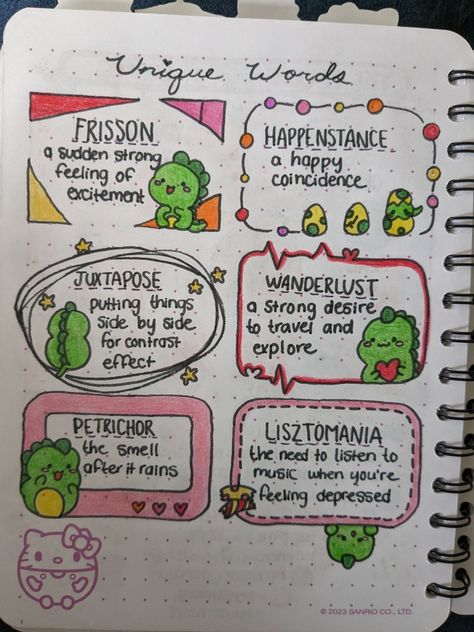 Unique Words
FRISSON
a sudden strong
feeling of
excitement
HAPPENSTANCE
a happy
coincidence
JUXTAPOSE
putting things
side by side
for contrast
effect
WANDERLUST
a strong desire
to travel and
explore
PETRICHOR
the smell
after it rains
LISZTOMANIA
the need to listen to
music when you're
feeling depressed
© 2023 SANRIO CO., LTD.